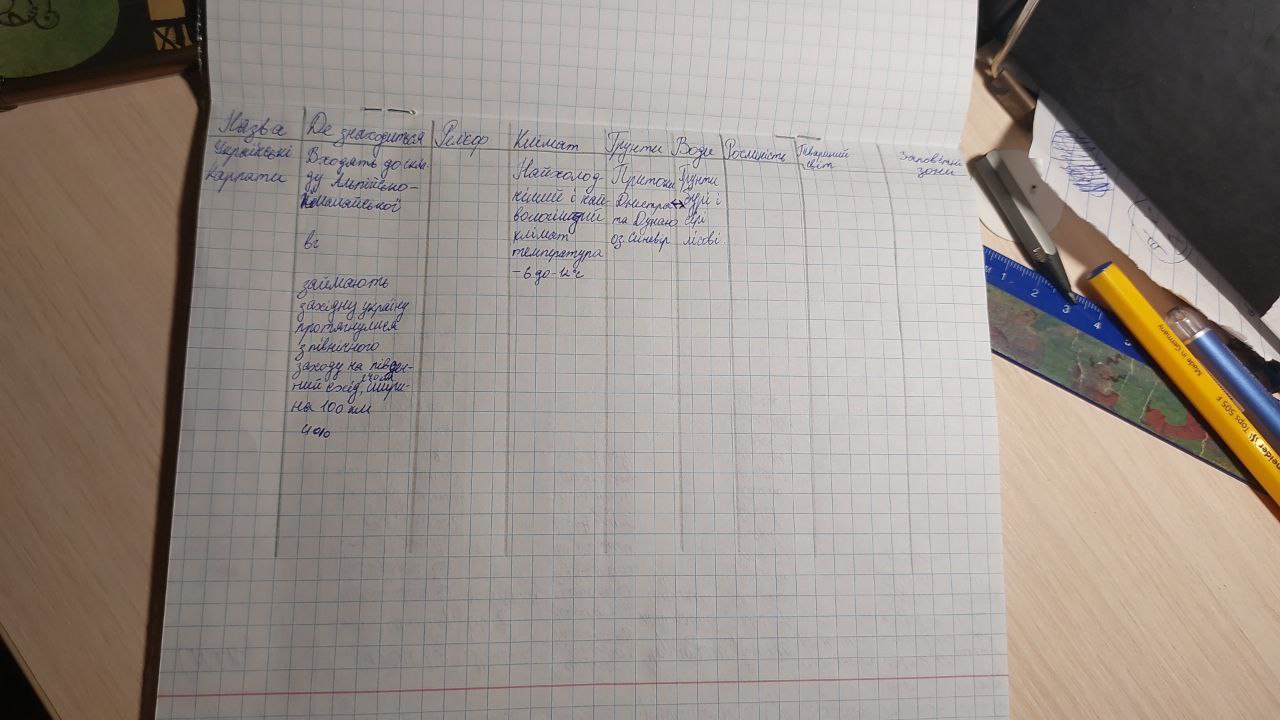 Назва Де знаходиться Рельєф Клімат Ґрунти Води Рослиність Твариний світ Заповітні зони
Українські
Карпати
Входять до скла
ду Альпійсько-
Гімалайської
займають
західну україну
протягнулися
з північного
заходу на півден-
ний схід, шири-
на 100 км
Найхолод
ніший і най
вологіший
клімат
температура
-6 до -12 С
Притоки
Дністра
та Дунаю
оз. Синевир
Ґрунти
бурі і
сірі
лісові
1 2 3 4 5
Made in Germany
Tops 505 F